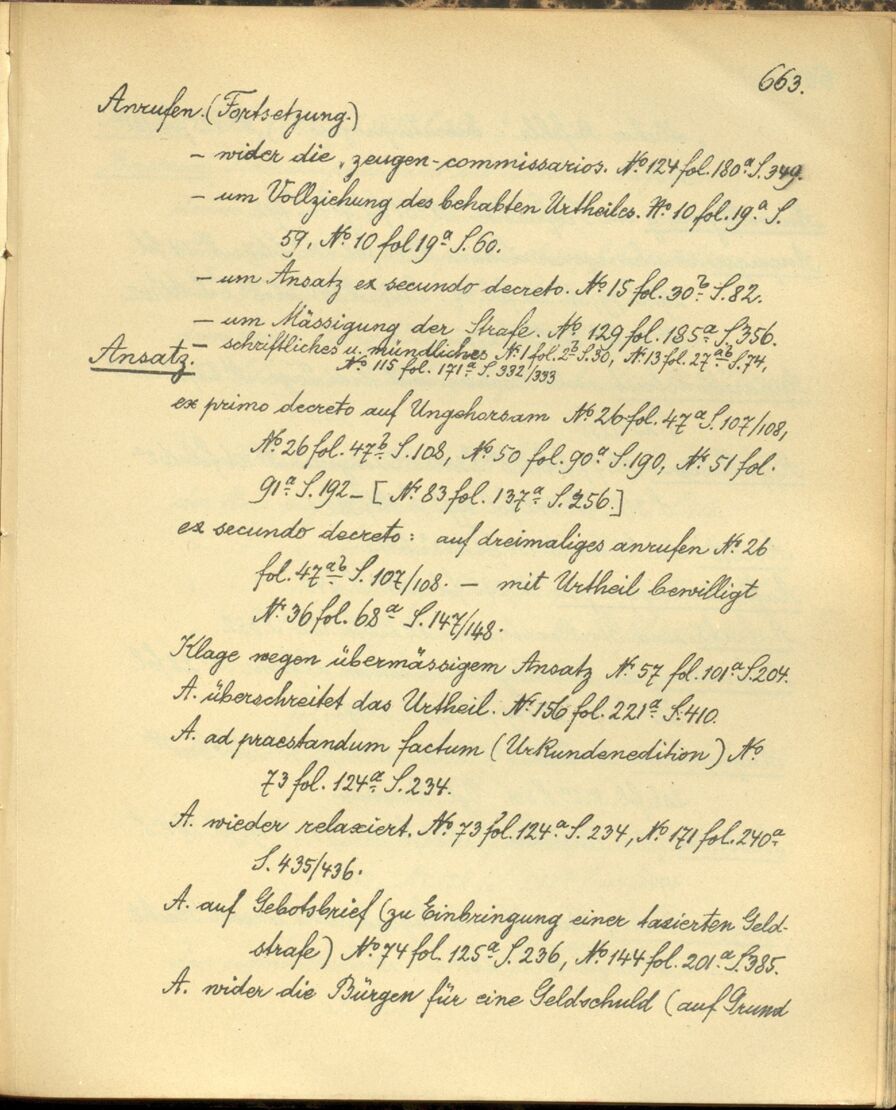 663.
Anrufen. (Fortsetzung.)
– wider die „zeugen-commissarios. No 124 fol. 180a S. 349.
– um Vollziehung des behabten Urtheiles. No 10 fol. 19a S.
59, No 10 fol 19a S. 60.
– um Ansatz ex secundo decreto. No 15 fol. 30b S. 82.
– um Mässigung der Strafe. No 129 fol. 185a S. 356.
– schriftliches u. mündliches No 1 fol. 2b S. 30, No 13 fol. 27ab S. 74,
No 115 fol. 171a S. 332/333
Ansatz.
ex primo decreto auf Ungehorsam No 26 fol. 47a S. 107/108,
No 26 fol. 47b S. 108, No 50 fol. 90a S. 190, No 51 fol.
91a S. 192 – [No 83 fol. 137a S. 256.]
ex secundo decreto: auf dreimaliges anrufen No 26
fol. 47ab S. 107/108. – mit Urtheil bewilligt
No 36 fol. 68a S. 147/148.
Klage wegen übermässigem Ansatz No 57 fol. 101a S. 204.
A. überschreitet das Urtheil. No 156 fol. 221a S. 410.
A. ad praestandum factum (Urkundenedition) No
73 fol. 124a S. 234.
A. wieder relaxiert. No 73 fol. 124a S. 234, No 171 fol. 240a
S. 435/436.
A. auf Gebotsbrief (zu Einbringung einer taxierten Geld-
strafe) No 74 fol. 125a S. 236, No 144 fol. 201a S. 385.
A. wider die Bürgen für eine Geldschuld (auf Grund